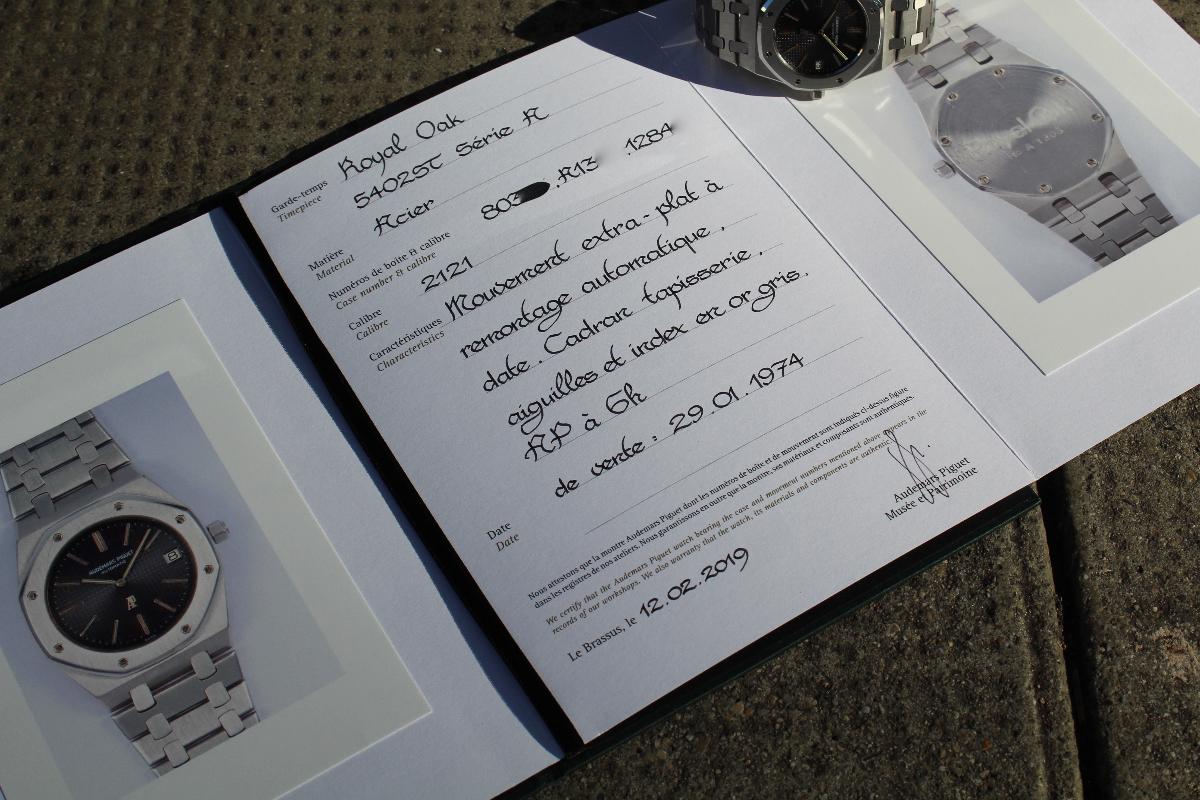 Garde-temps
Timepiece
Royal Oak
5402ST Série A
Matière
Material
Acier
Numéros de boîte & calibre
Case number & calibre
803 .A13 .1284
Calibre
Calibre
2121
Caractéristiques
Characteristics
Mouvement extra-plat à
remontage automatique,
date. Cadran tapisserie,
aiguilles et index en or gris.
AP à 6h
Date
Date
de vente : 29.01.1974
Nous attestons que la montre Audemars Piguet dont les numéros de boîte et de mouvement sont indiqués ci-dessus figure
dans les registres de nos ateliers. Nous garantissons en outre que la montre, ses matériaux et composants sont authentiques.
We certify that the Audemars Piguet watch bearing the case and movement numbers mentioned above appears in the
records of our workshops. We also warranty that the watch, its materials and components are authentic.
Audemars Piguet
Musée et Patrimoine
Le Brassus, le 12.02.2019
AUDEMARS PIGUET
AUTOMATIC
AP